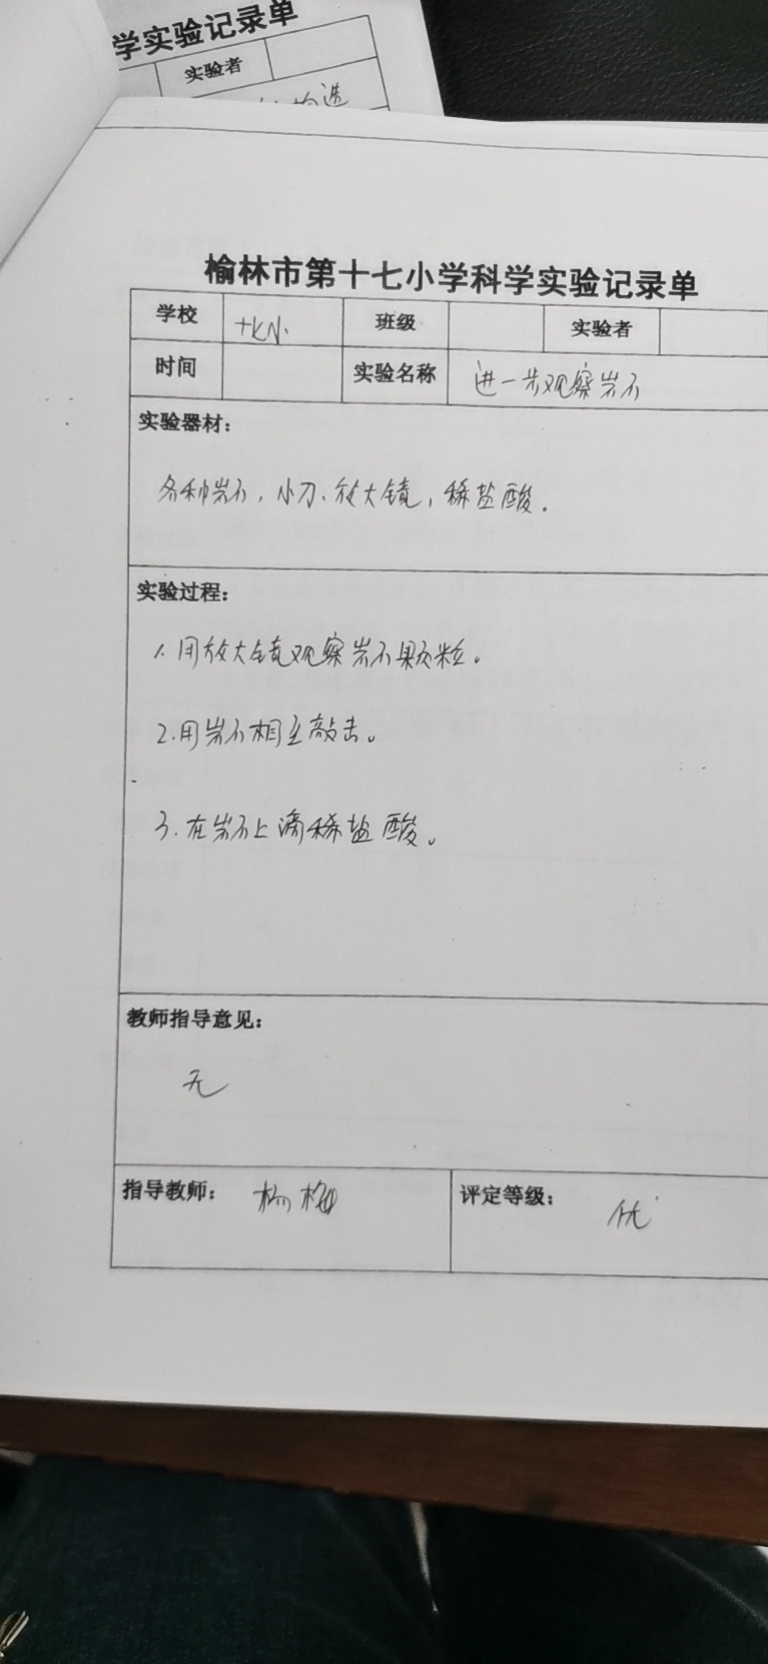 学实验记录单
实验者
构造
榆林市第十七小学科学实验记录单
学校 十七小 班级 实验者
时间 实验名称 进一步观察岩石
实验器材：
各种岩石，小刀、放大镜，稀盐酸．
实验过程：
1.用放大镜观察岩石颗粒。
2.用岩石相互敲击。
3.在岩石上滴稀盐酸。
教师指导意见：
无
指导教师： 杨梅 评定等级： 优